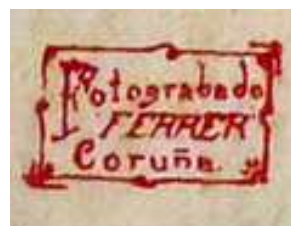 Fotograbado
FERRER
Coruña.